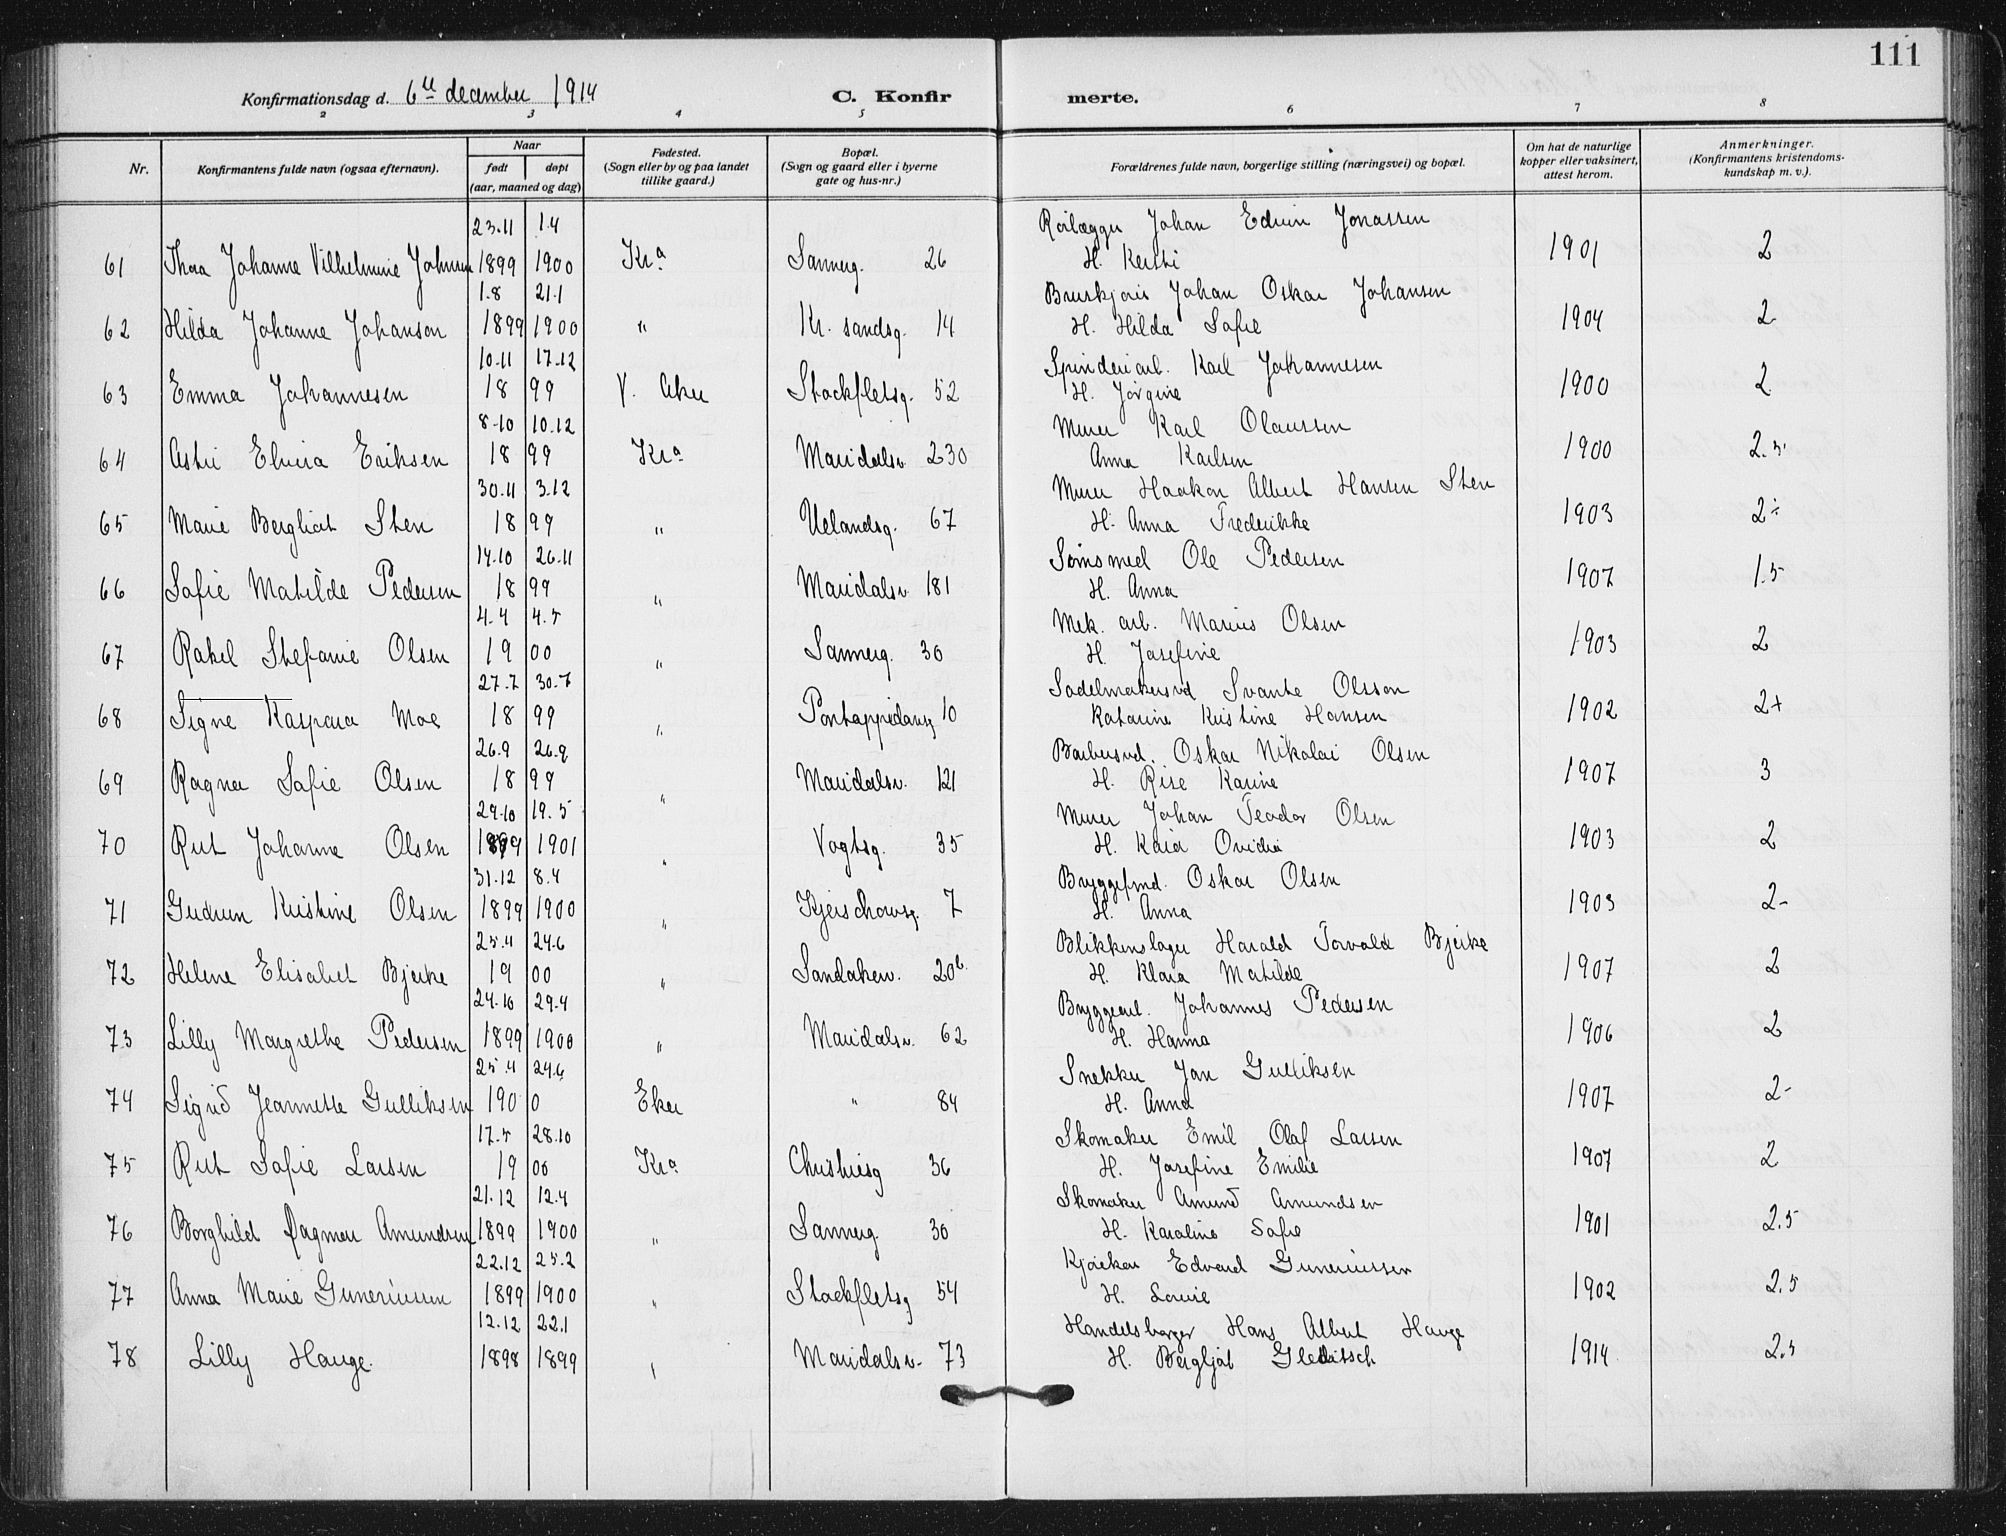 111
Konfirmationsdag d. 6te december 1914 C. Konfir merte.
2 3 4 5 6 7 8
Nr. Konfirmantens fulde navn (ogsaa efternavn). Naar født døpt (aar, maaned og dag) Fødested. (Sogn eller by og paa landet tillike gaard.) Bopæl. (Sogn og gaard eller i byerne gate og hus-nr.) Forældrenes fulde navn, borgerlige stilling (næringsvei) og bopæl. Om hat de naturlige kopper eller vaksinert, attest herom. Anmerkninger. (Konfirmantens kristendoms-kundskap m. v.).
23.11 1.4 Johan Edvin Jonassen
61 Johanne Vilhelmine 1899 1900 Kra Sannerg. 26 H. 1901 2
1.8 21.1 Johan Oskar Johansen
62 Hilda Johanne Johanson 1899 1900 " Kr. sandsg. 14 H. Hilda Sofie 1904 2
10.11 17.12 Spinderiarb. Karl Johannesen
63 Emma Johannesen 18 99 V. Aker Stockfletsg. 52 H. Jørgine 1900 2
8.10 10.12 Murer Karl Olaussen
64 Elvira Eriksen 18 99 Kra Maridalsv. 230 Anna Karlsen 1900 2.5
30.11 3.12 Murer Haakon Albert Hansen Sten
65 Marie Bergliot Sten 18 99 " Uelandsg. 67 H. Anna Frederikke 1903 2÷
14.10 26.11 Sømsmed Ole Pedersen
66 Sofie Matilde Pedersen 18 99 " Maridalsv. 181 H. Anna 1907 1.5
4.4 4.5 Mek. arb. Marius Olsen
67 Rakel Stefanie Olsen 19 00 " Sannerg. 30 H. Josefine 1903 2
27.7 30.7 Svante Olsson
68 Signe Kaspara Moe 18 99 " 10 Katarine Kristine Hansen 1902 2+
26.9 Oskar Nikolai Olsen
69 Ragna Sofie Olsen 18 99 " Maridalsv. 121 H. Karine 1907 3
29.10 19.5 Murer Johan Teodor Olsen
70 Rut Johanne Olsen 1899 1901 " Vogtsg. 35 H. Kaia Ovidia 1903 2
31.12 8.4 Oskar Olsen
71 Gudrun Kristine Olsen 1899 1900 " Kjerschowsg. 7 H. Anna 1903 2-
25.4 24.6 Blikkenslager Harald Torvald Bjerke
72 Helene Elisabet Bjerke 19 00 " Sandakerv. 20b. H. Klara Matilde 1907 2
24.10 29.4 Bryggearb. Johannes Pedersen
73 Lilly Margrethe Pedersen 1899 1900 " Maridalsv. 62 H. Hanna 1906 2
25.4 24.6 Snekker Jan Gulliksen
74 Sigrid Jeannette Gulliksen 1900 Eker " 84 H. Anna 1907 2-
17.5 28.10 Skomaker Emil Olaf Larsen
75 Rut Sofie Larsen 19 00 Kra Christiesg 36 H. Josefine Emilie 1907 2
21.12 12.4 Skomaker Amund Amundsen
76 Borghild Dagmar Amundsen 1899 1900 " Sannerg. 30 H. Karoline Sofie 1901 2.5
22.12 25.2 Edvard Guneriussen
77 Anna Marie Gunerиussen 1899 1900 " Stockfletsg 54 H. Lovise 1902 2.5
12.12 22.1 Handelsborger Hans Albert Hauge
78 Lilly Hauge. 1898 1899 " Maridalsv. 73 H. Bergljot Gleditsch 1914 2.5